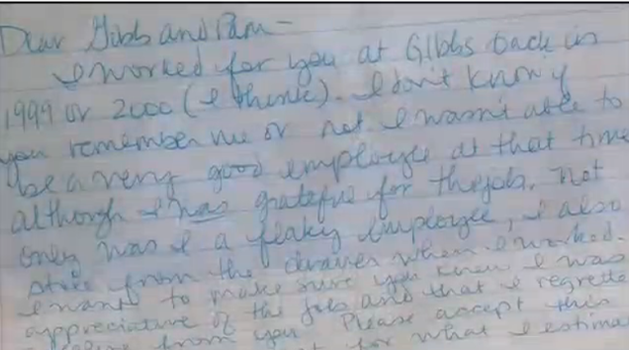 Dear Gibb and Pam -
I worked for you at Gibbs back in
1999 or 2000 (I think). I don't know if
you remember me or not I wasn't able to
be a very good employee at that time
although I was grateful for the job. Not
only was I a flaky employee, I also
stole from the drawer when I worked.
I want to make sure you know I was
appreciative of the job and that I regrette
from you. Please accept this
for what I estima